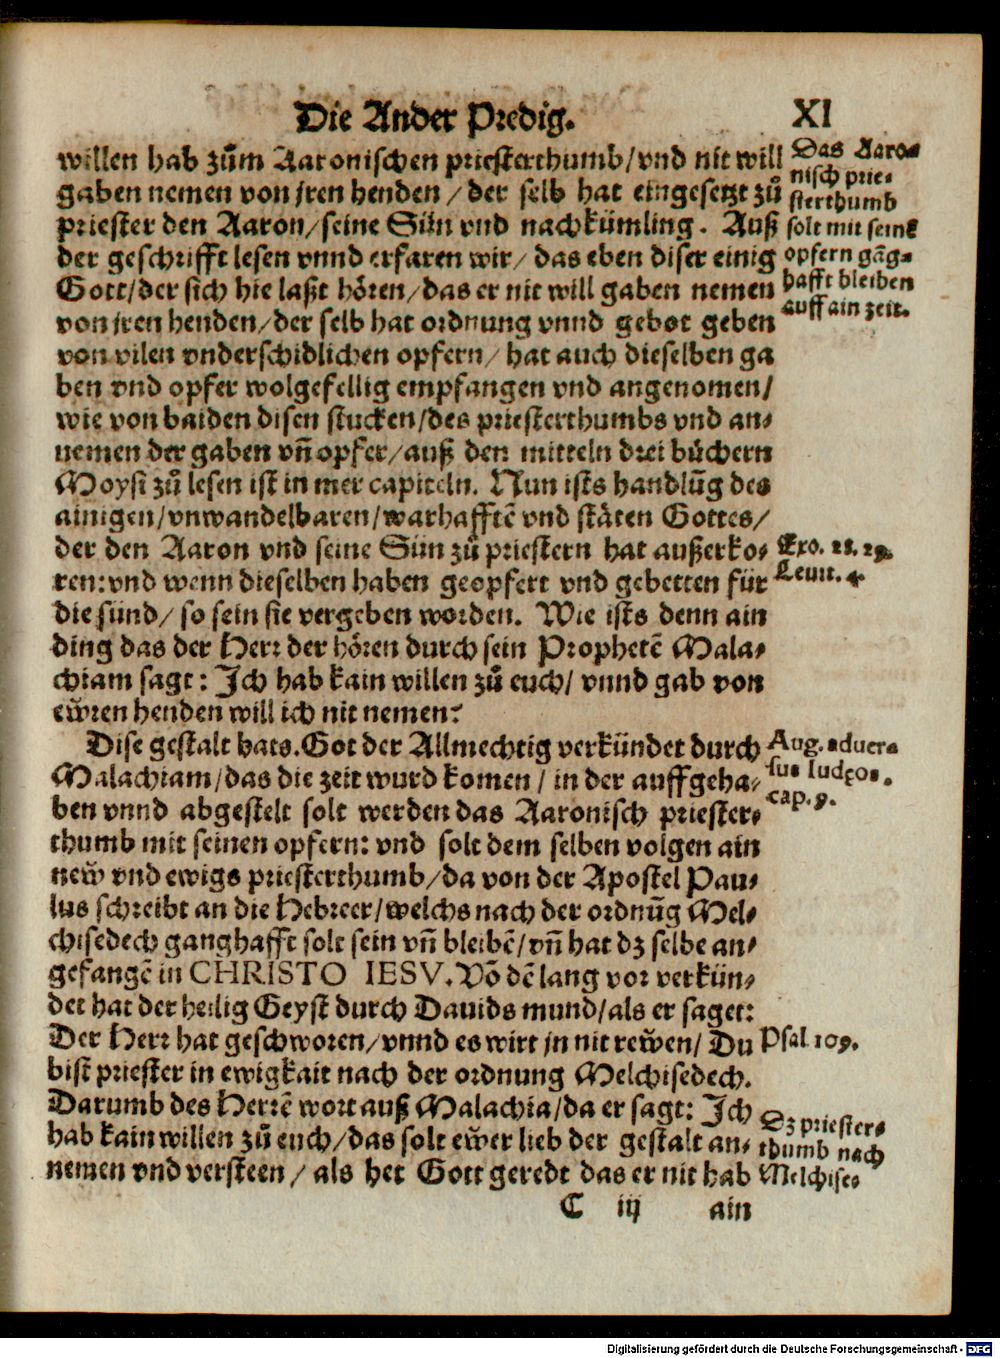 Die Ander Predig. XI
willen hab zům Aaronischen priesterthumb/vnd nit will
gaben nemen von jren henden/der selb hat eingesetzt zů
priester den Aaron/seine Sün vnd nachkümling. Auß
der geschrifft lesen vnnd erfaren wir/das eben diser einig
Gott/der sich hie laßt hören/das er nit will gaben nemen
von jren henden/der selb hat ordnung vnnd gebot geben
von vilen vnderschidlichen opfern/hat auch dieselben ga
ben vnd opfer wolgefellig empfangen vnd angenomen/
wie von baiden disen stucken/des priesterthumbs vnd an-
nemen der gaben vñ opfer/auß den mitteln drei bůchern
Moysi zů lesen ist in mer capiteln. Nun ists handlūg des
ainigen/vnwandelbaren/warhafftē vnd stäten Gottes/
der den Aaron vnd seine Sün zů priestern hat außerko-
ren:vnd wenn dieselben haben geopfert vnd gebetten für
die sünd/so sein sie vergeben worden. Wie ists denn ain
ding das der Herr der hören durch sein Prophetē Mala-
chiam sagt: Ich hab kain willen zů euch/vnnd gab von
ew̌ren henden will ich nit nemen?
Dise gestalt hats.Got der Allmechtig verkündet durch
Malachiam/das die zeit wurd komen/in der auffgeha-
ben vnnd abgestelt solt werden das Aaronisch priester-
thumb mit seinen opfern: vnd solt dem selben volgen ain
new̌ vnd ewigs priesterthumb/da von der Apostel Pau-
lus schreibt an die Hebreer/welchs nach der ordnūg Mel-
chisedech ganghafft solt sein vñ bleibē/vñ hat dz selbe an-
gefangē in CHRISTO IESV.Võ dē lang vor verkün-
det hat der heilig Geyst durch Dauids mund/als er saget:
Der Herr hat geschworen/vnnd es wirt jn nit rew̌en/Du
bist priester in ewigkait nach der ordnung Melchisedech.
Darumb des Herrē wort auß Malachia/da er sagt: Ich
hab kain willen zů euch/das solt ew̌er lieb der gestalt an-
nemen vnd versteen/als het Gott geredt das er nit hab
C iij ain
Das Aaro-
nisch prie-
sterthumb
solt mit seinē
opfern gāg-
hafft bleiben
auff ain zeit.
Exo. 28. 29.
Leuit. 4
Aug. aduer-
sus Iudęos.
cap. 9.
Psal 109.
Dz priester-
thumb nach
Melchise-
Digitalisierung gefördert durch die Deutsche Forschungsgemeinschaft - DFG